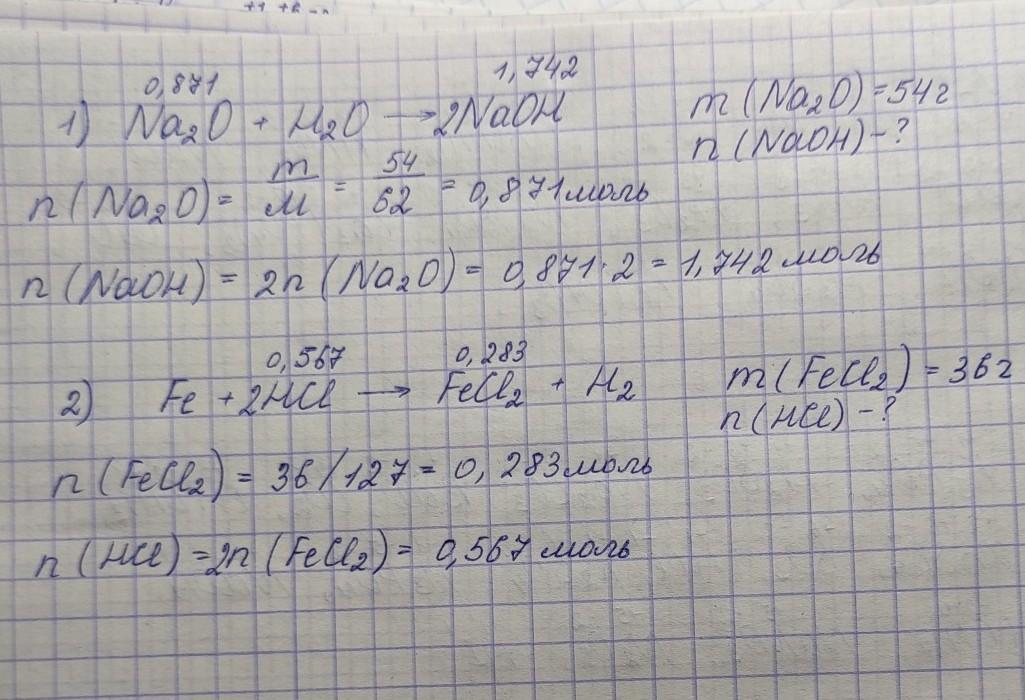 0,871 1,742
1) Na₂O + H₂O → 2NaOH m (Na₂O) = 54 г
n (NaOH) - ?
n (Na₂O) = m/M = 54/62 = 0,871 моль
n (NaOH) = 2n (Na₂O) = 0,871 · 2 = 1,742 моль
0,567 0,283
2) Fe + 2HCl → FeCl₂ + H₂ m (FeCl₂) = 36 г
n (HCl) - ?
n (FeCl₂) = 36/127 = 0,283 моль
n (HCl) = 2n (FeCl₂) = 0,567 моль